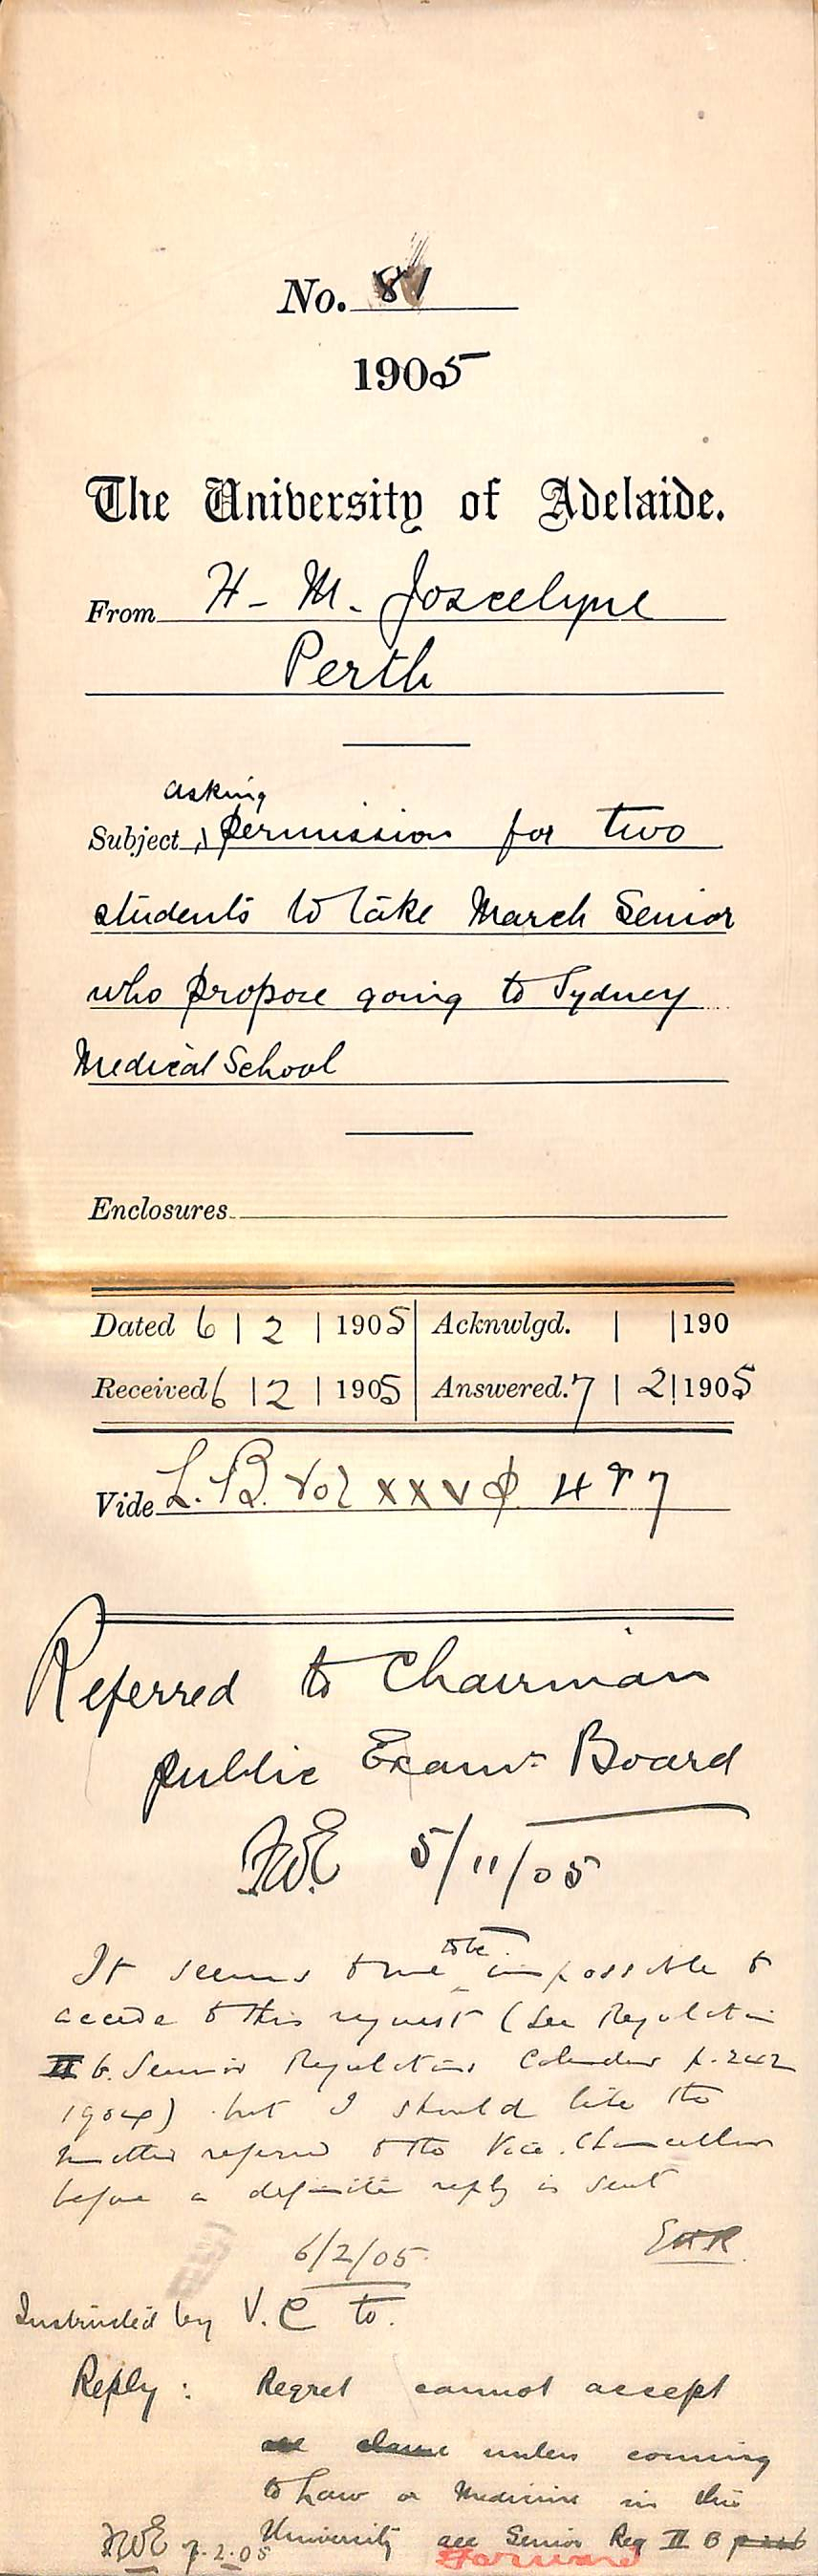 No. 81
1905
The University of Adelaide.
From H. M. Joscelyne
Perth
asking
Subject permission for two
students to take March Senior
who propose going to Sydney
Medical School
Enclosures
Dated 6 | 2 | 1905 Acknwlgd. | | 190
Received 6 | 2 | 1905 Answered. 7 | 2 | 1905
Vide L. B. Vol XXV p 497
Referred to Chairman
public Exams Board
5/11/05
to be
It seems to me impossible to
accede to this request (See Regulation
II 6. Senior Regulations Calendar p. 242
1904) but I should like the
matter referred to the Vice. Chancellor
before a definite reply is sent
6/2/05 EHR
Instructed by V. C to.
Reply : Regret cannot accept
unless coming
to Law or Medicine in this
University see Senior Reg II B
7.2.05
Forward